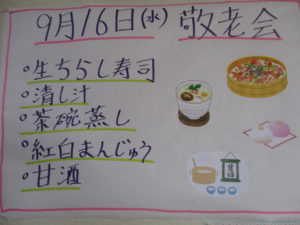 9月16日(水) 敬老会
○生ちらし寿司
○清し汁
○茶碗蒸し
○紅白まんじゅう
○甘酒
甘酒